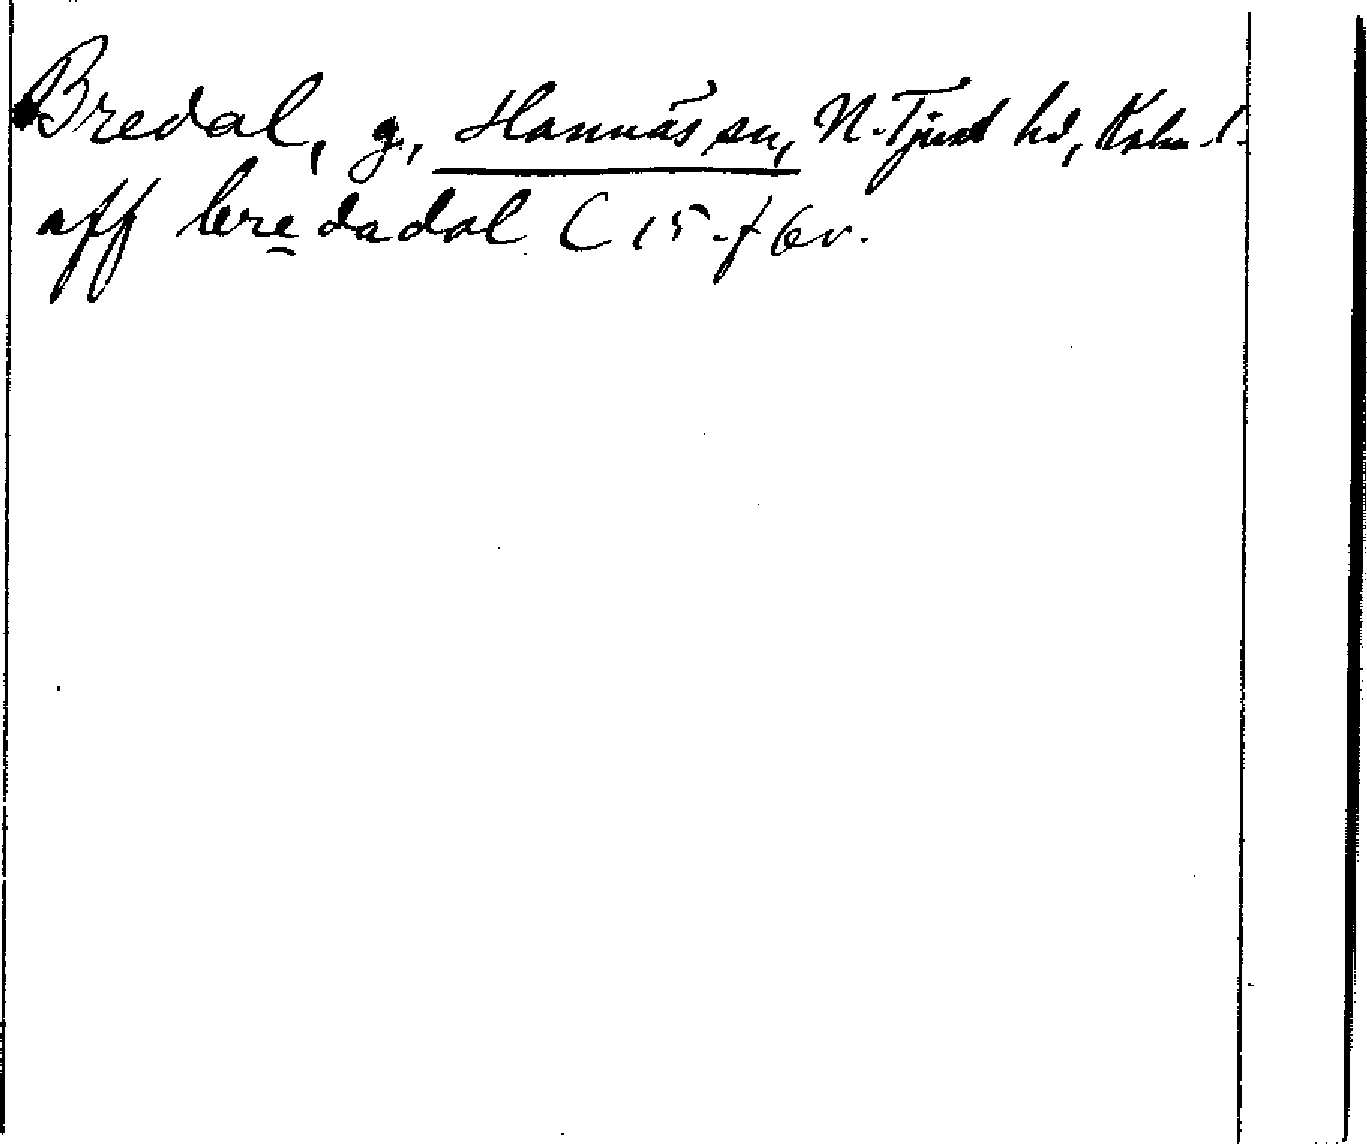 Bredal, g, Hannäs sn, N. Tjust hd, Kalm l.
aff bredadal C 15 f 6v.